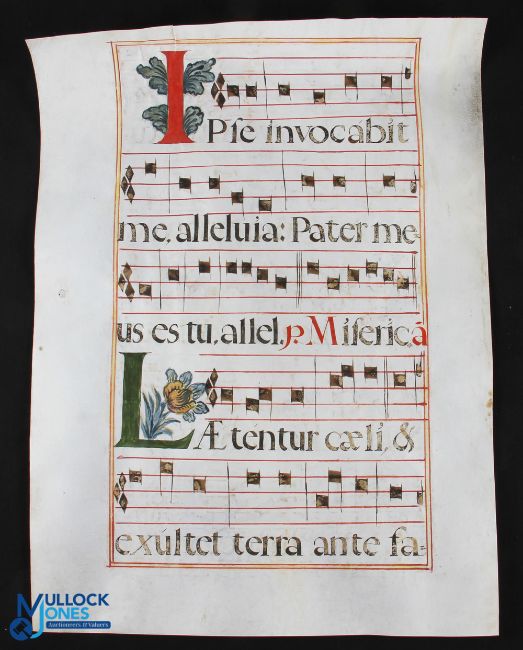 IPse invocábit
me, alleluia: Pater me-
us es tu, allel. ps. Miseric.a
LÆtentur cæli, &
exúltet terra ante fa-
MULLOCK
JONES
Auctioneers & Valuers